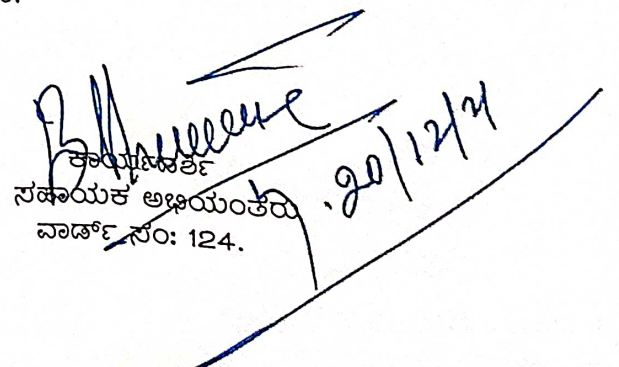 ಕಾರ್ಯದರ್ಶಿ
ಸಹಾಯಕ ಅಭಿಯಂತರು
ವಾರ್ಡ್ ಸಂ: 124.
20/12/21